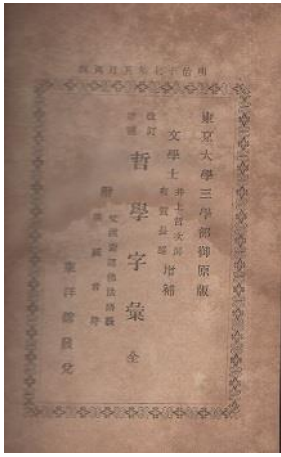 明治十七年五月
東京大學三學部御原版
文學士
井上哲次郎
有賀長雄
增補
改訂
增補
哲學字彙 全
附
清國音符
東洋館發兌